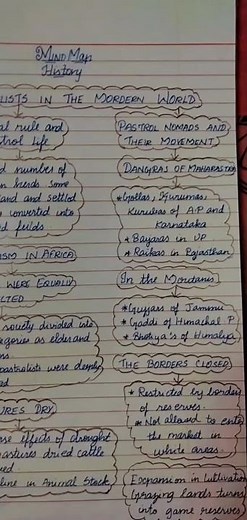 MIND MAP
History
LISTS IN THE MORDERN WORLD
al rule and
trol life
d number of
n herds some
land and settled
converted into
d fields
ISM IN AFRICA
WERE EQUALLY
CTED
society divided into
egories as elder and
ns.
pastralists were deeply
ed
URES DRY
se effects of drought
pastures dried cattle
ved.
line in Animal Stock
PASTROL NOMADS AND
THEIR MOVEMENT
DANGRAS OF MAHARASTRA
* Gollas, Kurumas,
Kurubas of A.P and
Karnataka
* Bayaras in UP
* Raikas in Rajasthan
In the Mountanis
* Gujjars of Jammu
* Gaddi of Himachal P
* Bhotiya's of Himalya
THE BORDERS CLOSED
* Restricted by border
of reserves.
* Not allowed to enter
the market in
white areas.
Expansion in Cultivation
Grazing lands turns
into game reserves